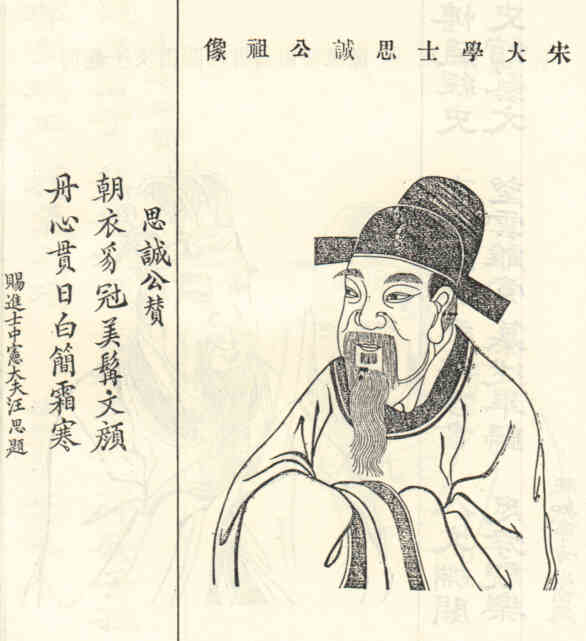 宋大學士思誠公祖像
思誠公贊
朝衣豸冠美髯文顏
丹心貫日白簡霜寒
賜進士中憲大夫汪思題